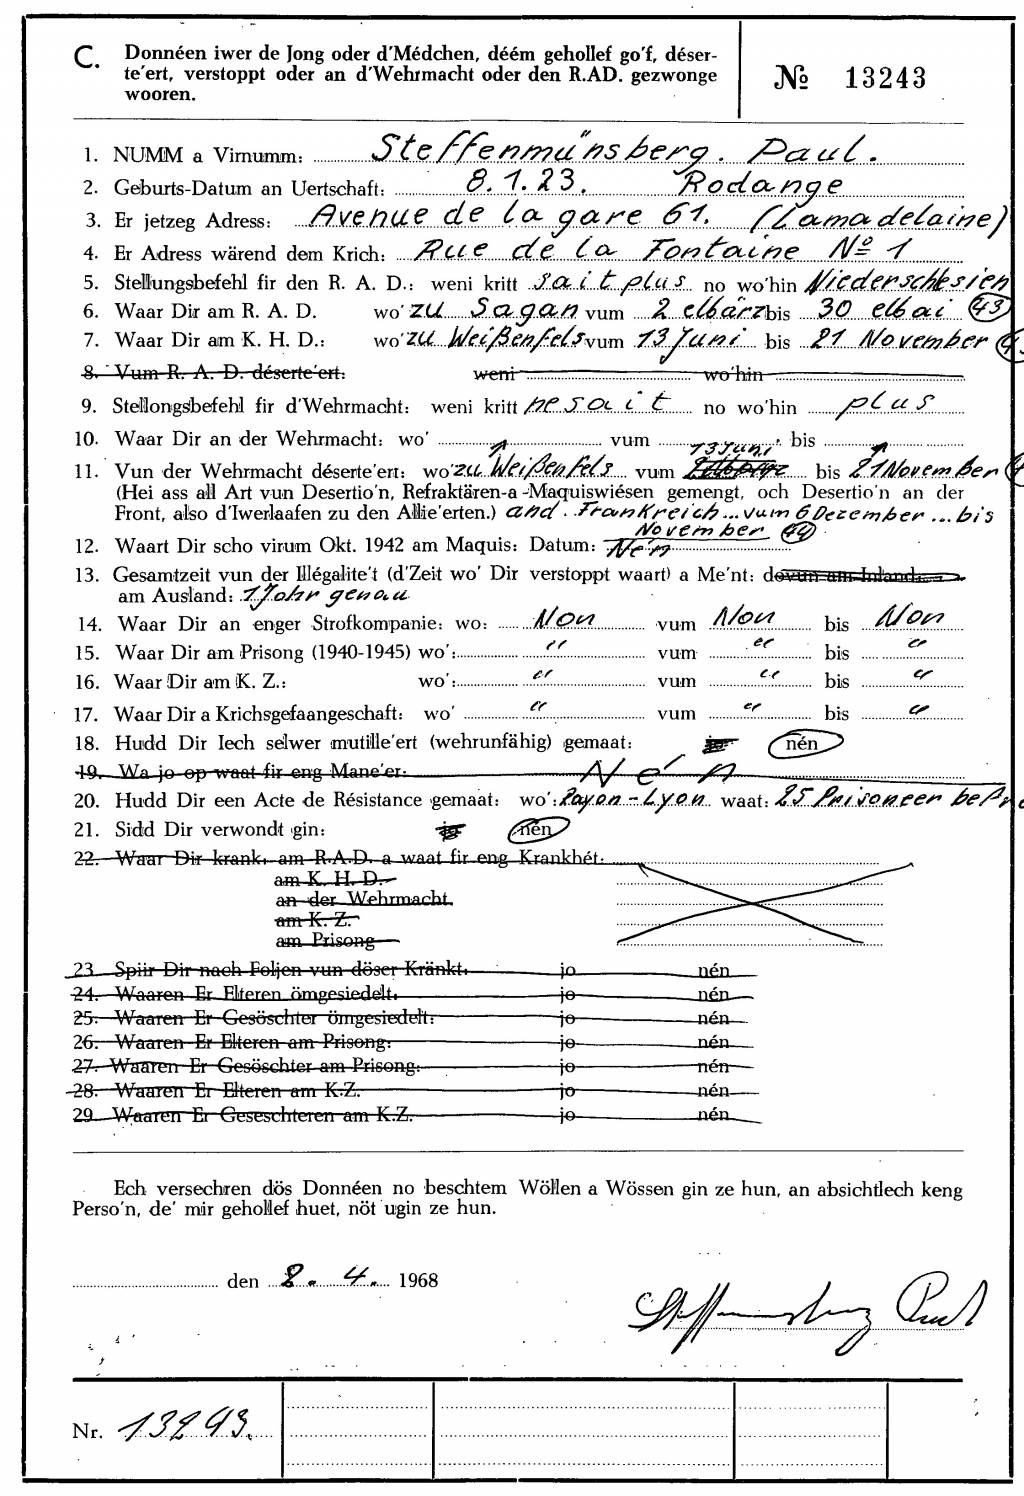 C. Donnéen iwer de Jong oder d'Médchen, déém gehollef go'f, déser-
te'ert, verstoppt oder an d'Wehrmacht oder den R.AD. gezwonge
wooren.
№ 13243
1. NUMM a Virnumm: Steffenmünsberg. Paul.
2. Geburts-Datum an Uertschaft: 8.1.23. Rodange
3. Er jetzeg Adress: Avenue de la gare 61. (Lamadelaine)
4. Er Adress wärend dem Krich: Rue de la Fontaine Nº 1
5. Stellungsbefehl fir den R. A. D.: weni kritt sait plus no wo'hin Niederschlesien
6. Waar Dir am R. A. D. wo' zu Sagan vum 2 elbärz bis 30 elbai 43
7. Waar Dir am K. H. D.: wo' zu Weißenfels vum 13 Juni bis 21 November
8. Vum R. A. D. déserte'ert: weni wo'hin
9. Stellongsbefehl fir d'Wehrmacht: weni kritt nesait no wo'hin plus
10. Waar Dir an der Wehrmacht: wo' vum bis
13 Juni
11. Vun der Wehrmacht déserte'ert: wo' zu Weißenfels vum bis 21 November
(Hei ass all Art vun Desertio'n, Refraktären-a-Maquiswiésen gemengt, och Desertio'n an der
Front, also d'Iwerlaafen zu den Allie'erten.) and. Frankreich vum 6 Dezember bis
November 44
12. Waart Dir scho virum Okt. 1942 am Maquis: Datum: Nén
13. Gesamtzeit vun der Illégalite't (d'Zeit wo' Dir verstoppt waart) a Me'nt: dovun am Inland:
am Ausland: 1 Johr genau
14. Waar Dir an enger Strofkompanie: wo: Non vum Non bis Non
15. Waar Dir am Prisong (1940-1945) wo': " vum " bis "
16. Waar Dir am K. Z.: wo': " vum " bis "
17. Waar Dir a Krichsgefaangeschaft: wo' " vum " bis "
18. Hudd Dir Iech selwer mutille'ert (wehrunfähig) gemaat: jo nén
19. Wa jo op waat fir eng Mane'er: Nén
20. Hudd Dir een Acte de Résistance gemaat: wo': Rayon-Lyon waat: 25 Prisoneer
21. Sidd Dir verwondt gin: jo nén
22. Waar Dir krank: am R.A.D. a waat fir eng Krankhét:
am K. H. D.
an der Wehrmacht
am K. Z.
am Prisong
23. Spiir Dir nach Foljen vun döser Kränkt: jo nén
24. Waaren Er Elteren ömgesiedelt: jo nén
25. Waaren Er Gesöschter ömgesiedelt: jo nén
26. Waaren Er Elteren am Prisong: jo nén
27. Waaren Er Gesöschter am Prisong: jo nén
28. Waaren Er Elteren am K.Z. jo nén
29. Waaren Er Geseschteren am K.Z. jo nén
Ech versechren dös Donnéen no beschtem Wöllen a Wössen gin ze hun, an absichtlech keng
Perso'n, de' mir gehollef huet, nöt ugin ze hun.
den 2. 4. 1968
Steffenmünsberg Paul
Nr. 13243.